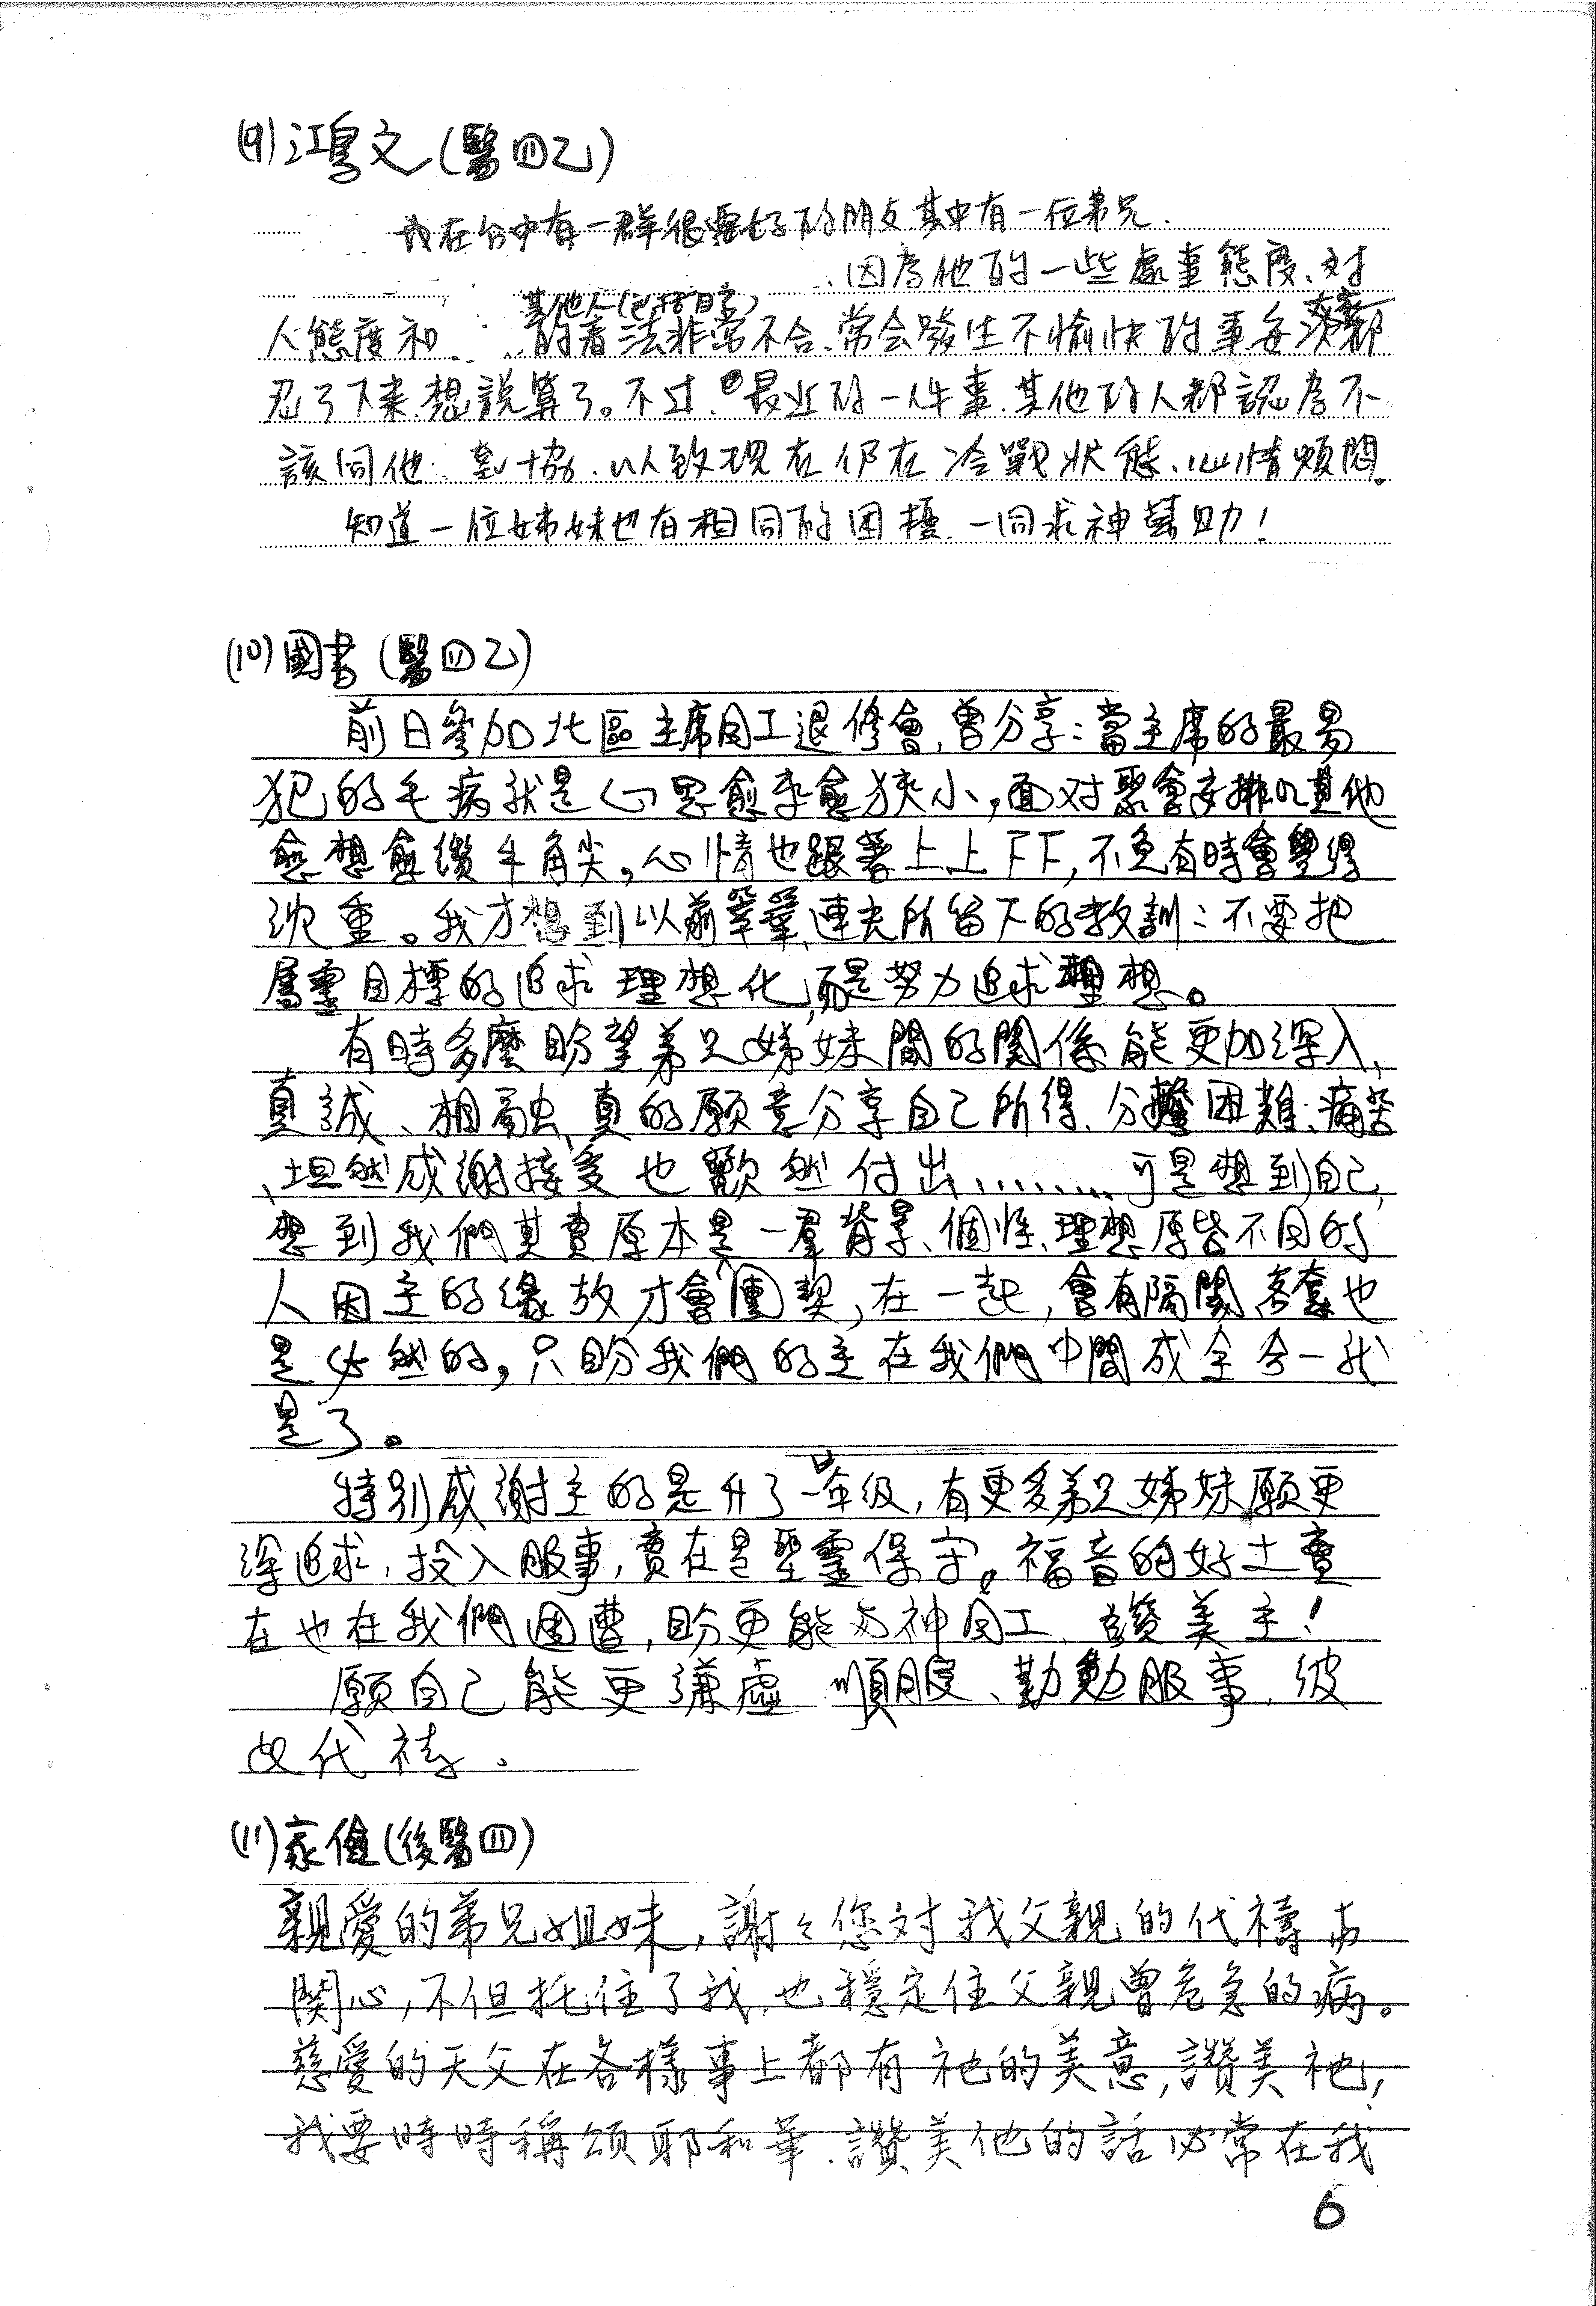 (9)鴻文(醫四乙)
我在班中有一群很要好的朋友其中有一位弟兄.
因為他的一些處事態度、對
其他人(包括自家)
人態度和 的看法非常不合、常会發生不愉快的事每次大家都
忍了下來想說算了。不过、最近的一件事、其他的人都認為不
該同他 妥協、以致現在仍在冷戰狀態、心情煩悶。
知道一位姊妹也有相同的困擾、一同求神幫助!
(10)國書(醫四乙)
前日參加北區主席同工退修會,曾分享:當主席的最易
犯的毛病就是心思愈來愈狹小,面对聚會安排以其他
愈想愈鑽牛角尖,心情也跟著上上下下,不免有時會變得
沈重。我才想到以前 連夫所留下的教訓:不要把
屬靈目標的追求理想化,而是努力追求理想。
有時多麼盼望弟兄姊妹間的關係能更加深入、
真誠、相融、真的願意分享自己所得、分擔困難、痛苦
、坦然感謝接受也歡然付出………可是想到自己,
想到我們其實原本是一羣背景、個性、理想原皆不同的
人因主的緣故才會團契,在一起,會有隔閡 也
是必然的,只盼我們的主在我們中間成全合一就
是了。
特別感謝主的是升了一年級,有更多弟兄姊妹願更
深追求,投入服事,實在是聖靈保守。福音的好土實
在也在我們周遭,盼更能与神同工、讚美主!
願自己能更謙虛 順服、勤勤服事,彼
此代禱.
(11)家儉(後醫四)
親愛的弟兄姐妹,謝々您对我父親的代禱与
関心,不但托住了我,也穩定住父親曾危急的病。
慈愛的天父在各樣事上都有祂的美意,讚美祂!
我要時時稱頌耶和華.讚美他的話必常在我
6